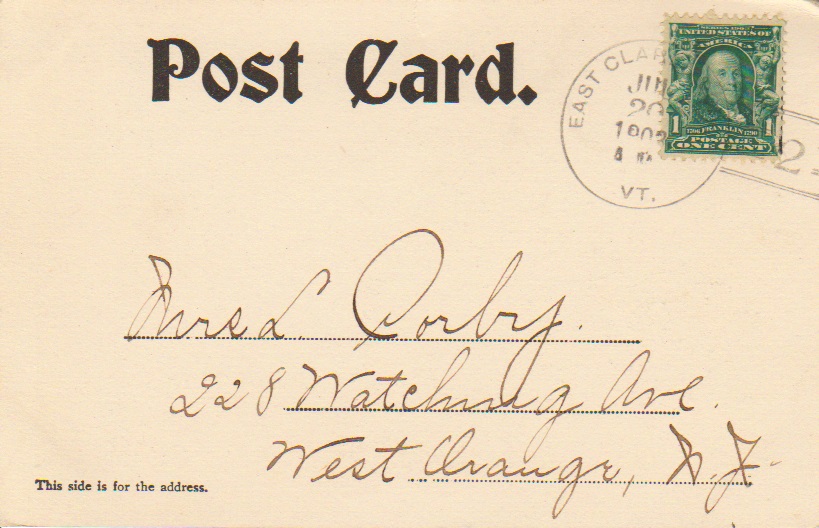 Post Card.
EAST CLAR
20
VT.
SERIES 1902
UNITED STATES OF
AMERICA
1 1706 FRANKLIN 1790 1
POSTAGE
ONE CENT
2
Mrs L. Corby.
228 Watchung Ave.
West Orange, N.J.
This side is for the address.